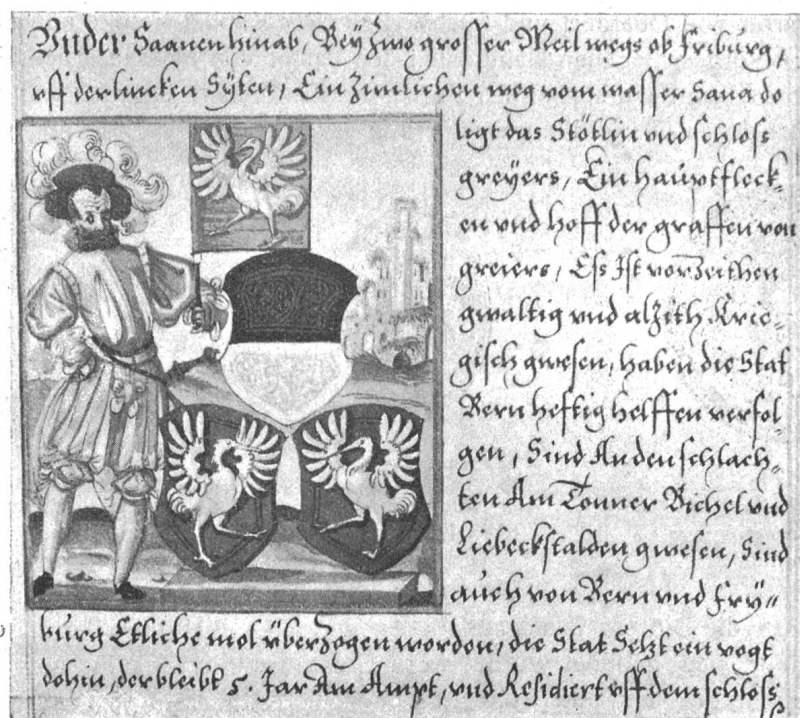 Vnder Saanen hinab, Bey zwo grosser Meil wegs ob Friburg,
vff der lincken Syten, Ein zimlichen weg vom wasser Sana do
ligt das Stötlin vnd schloss
greyers, Ein hauptfleck-
en vnd hoff der graffen von
greiers, Ess Ist vorzeithen
gwaltig vnd alzith Krie-
gisch gwesen, haben die Stat
Bern heftig helffen verfol-
gen, Sind An den schlach-
ten Am Tonner Bichel vnd
Liebeckstalden gwesen, Sind
auch von Bern vnd Fry-
burg Etliche mol vberzogen worden, die Stat Setzt ein vogt
dohin, der bleibt 5. Jar Am Ampt, vnd Residiert vff dem schloss